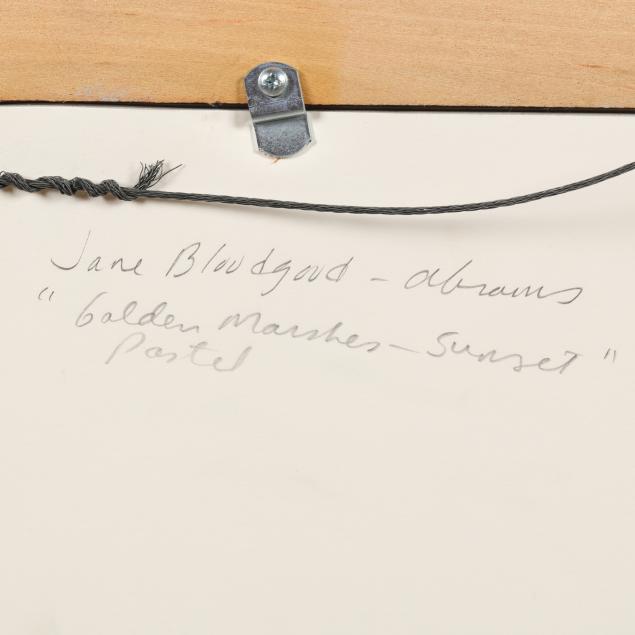 Jane Bloodgood - abrams
"Golden Marshes - Sunset"
Pastel